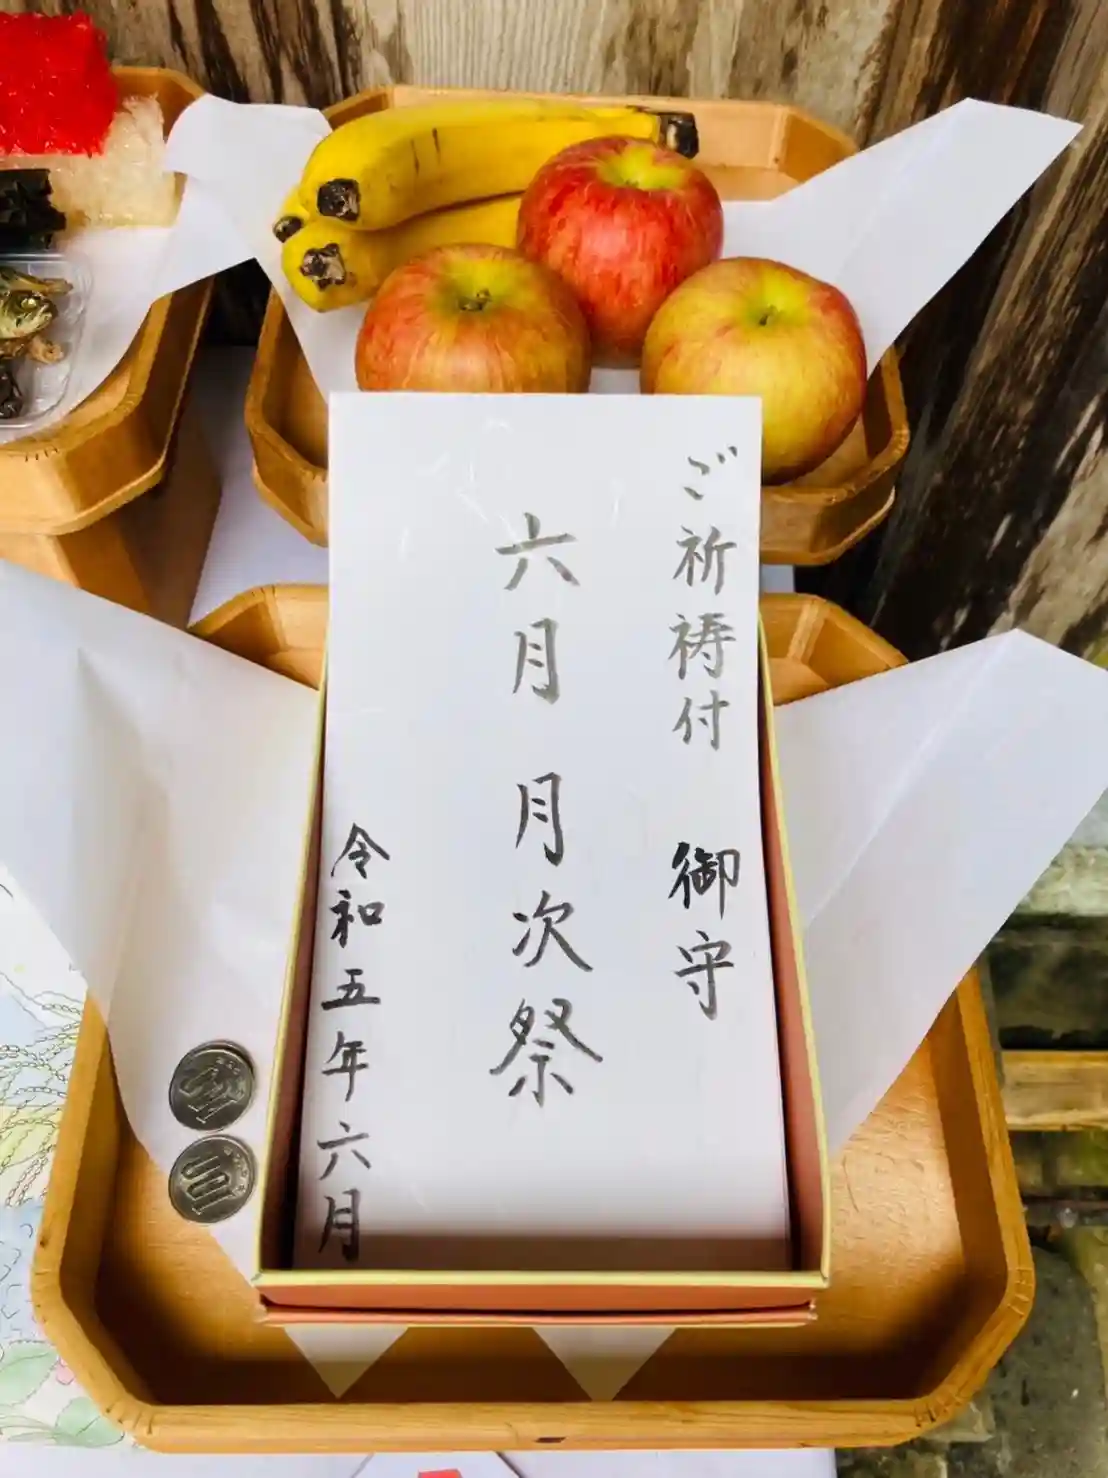 ご祈祷付 御守
六月 月次祭
令和五年六月